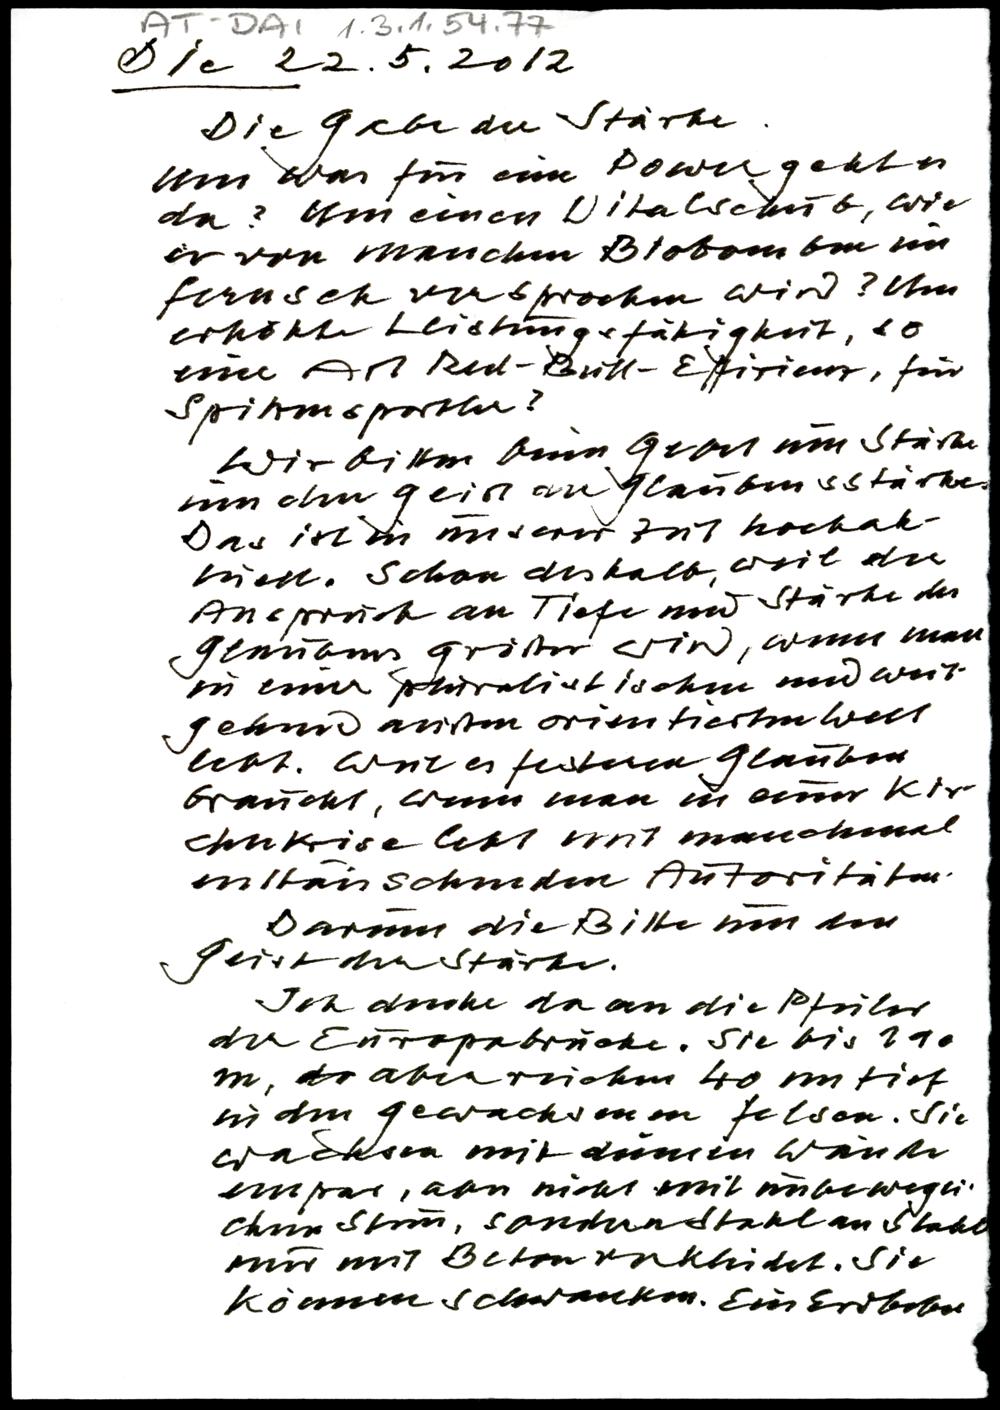 AT-DAI 1.3.1.54.77
Die 22.5.2012
Die Gabe der Stärke.
Um was für eine Power geht es
da? Um einen Vitalschub, wie
er von manchen Biobomben im
fernseh versprochen wird? Um
erhöhte Leistungsfähigkeit, so
eine Art Red-Bull-Elixier, für
Spitzensportler?
Wir bitten beim Gebet um Stärke
um den Geist der Glaubensstärke.
Das ist in unserer Zeit hochak-
tuell. Schon deshalb, weil der
Anspruch an Tiefe und Stärke des
Glaubens größer wird, wenn man
in einer pluralistischen und weit-
gehend außen orientierten Welt
lebt. Weil es festeren Glauben
braucht, wenn man in einer Kir-
chenkrise lebt mit manchmal
enttäuschenden Autoritäten.
Darum die Bitte um den
Geist der Stärke.
Ich denke da an die Pfeiler
der Europabrücke. Sie bis 190
m, aber reichen 40 m tief
in den gewachsenen Felsen. Sie
wachsen mit dünnen Wänden
empor, aber nicht mit unbewegli-
chem Stein, sondern Stahl an Stahl
nur mit Beton verkleidet. Sie
können schwanken. Ein Erdbeben